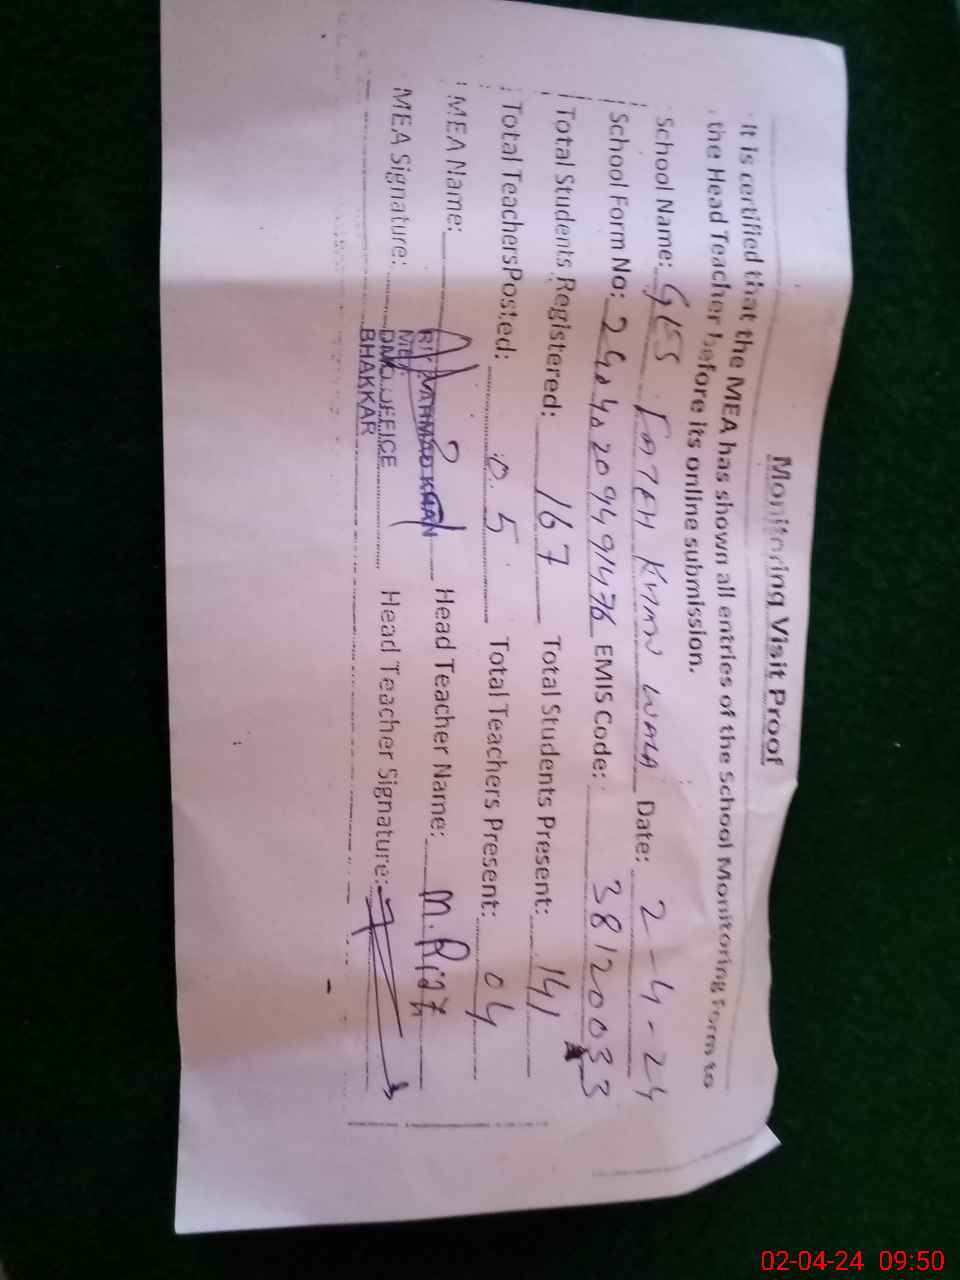 Monitoring Visit Proof
It is certified that the MEA has shown all entries of the School Monitoring Form to
the Head Teacher before its online submission.
School Name: GES FATEH KHAN WALA Date: 2-4-24
School Form No: EMIS Code: 38120033
Total Students Registered: 167 Total Students Present: 141
Total TeachersPosted: 05 Total Teachers Present: 04
MEA Name: AHMAD KHAN Head Teacher Name: M. Riaz
MEA
MEA Signature: DMO OFFICE Head Teacher Signature:
BHAKKAR
02-04-24 09:50